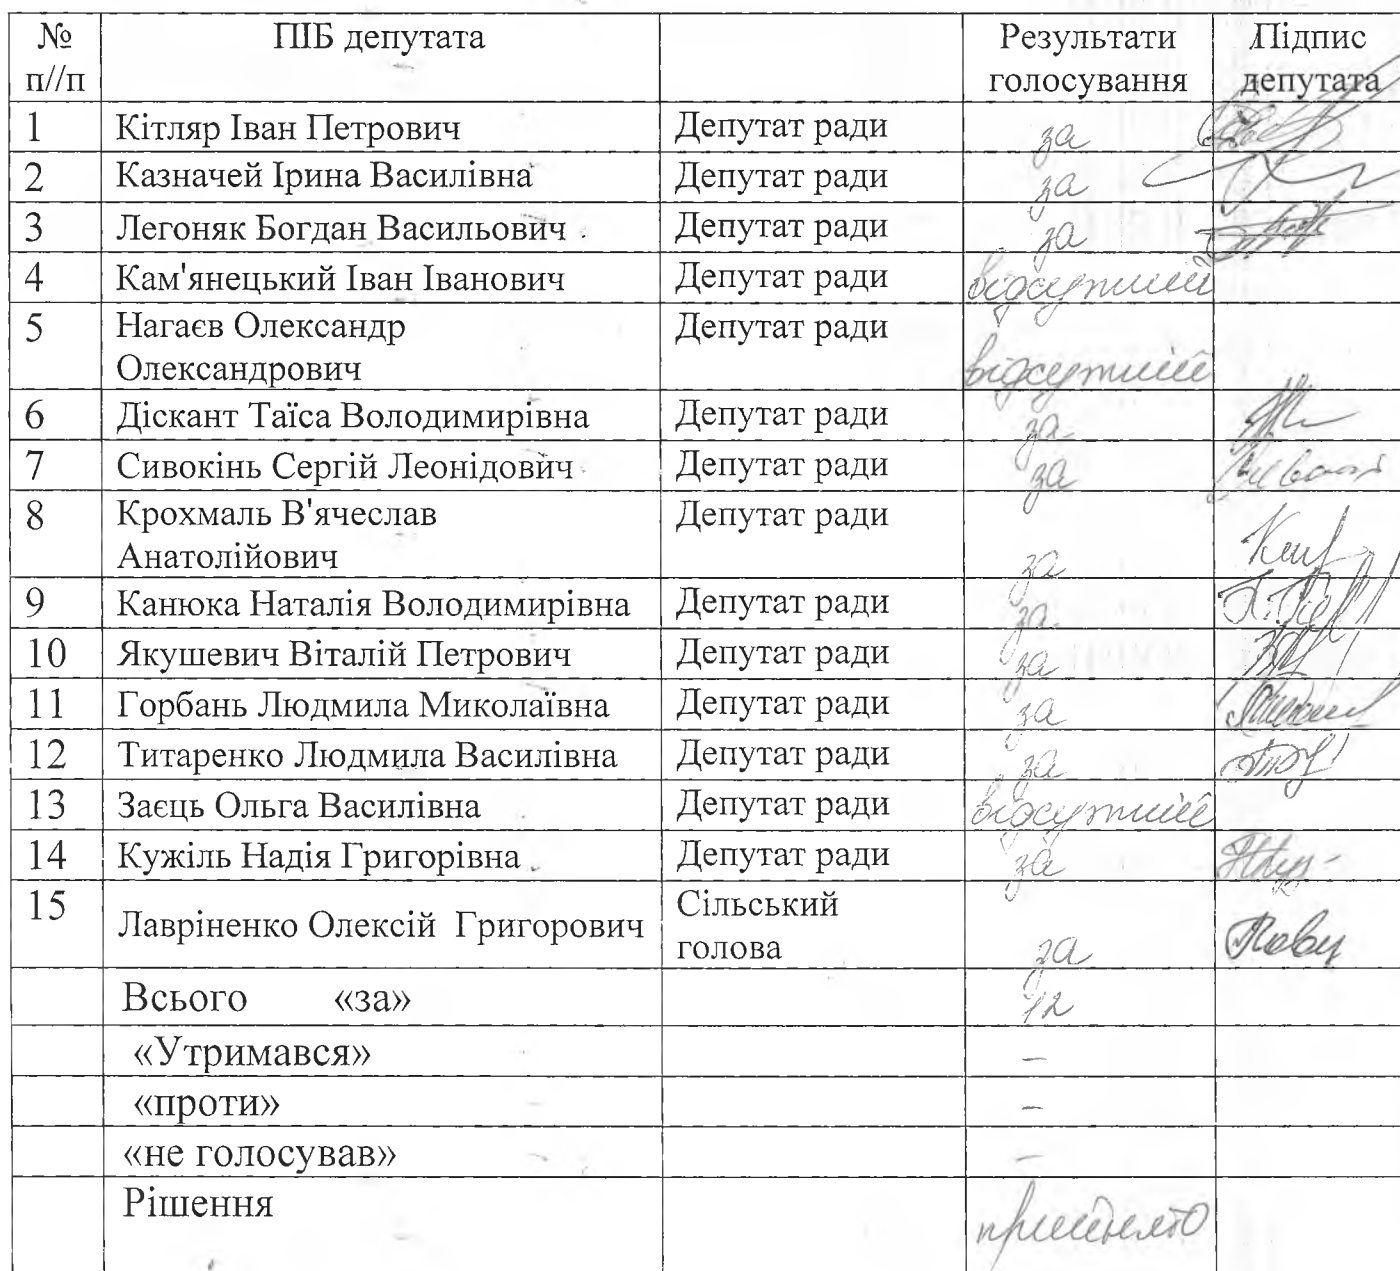 № ПІБ депутата Результати Підпис
п//п голосування депутата
1 Кітляр Іван Петрович Депутат ради за
2 Казначей Ірина Василівна Депутат ради за
3 Легоняк Богдан Васильович Депутат ради за
4 Кам'янецький Іван Іванович Депутат ради відсутній
5 Нагаєв Олександр Депутат ради
Олександрович відсутній
6 Діскант Таїса Володимирівна Депутат ради за
7 Сивокінь Сергій Леонідович Депутат ради за
8 Крохмаль В'ячеслав Депутат ради
Анатолійович за
9 Канюка Наталія Володимирівна Депутат ради за
10 Якушевич Віталій Петрович Депутат ради за
11 Горбань Людмила Миколаївна Депутат ради за
12 Титаренко Людмила Василівна Депутат ради за
13 Заєць Ольга Василівна Депутат ради відсутній
14 Кужіль Надія Григорівна Депутат ради за
15 Лавріненко Олексій Григорович Сільський
голова за
Всього «за» 12
«Утримався» –
«проти» –
«не голосував» –
Рішення прийнято